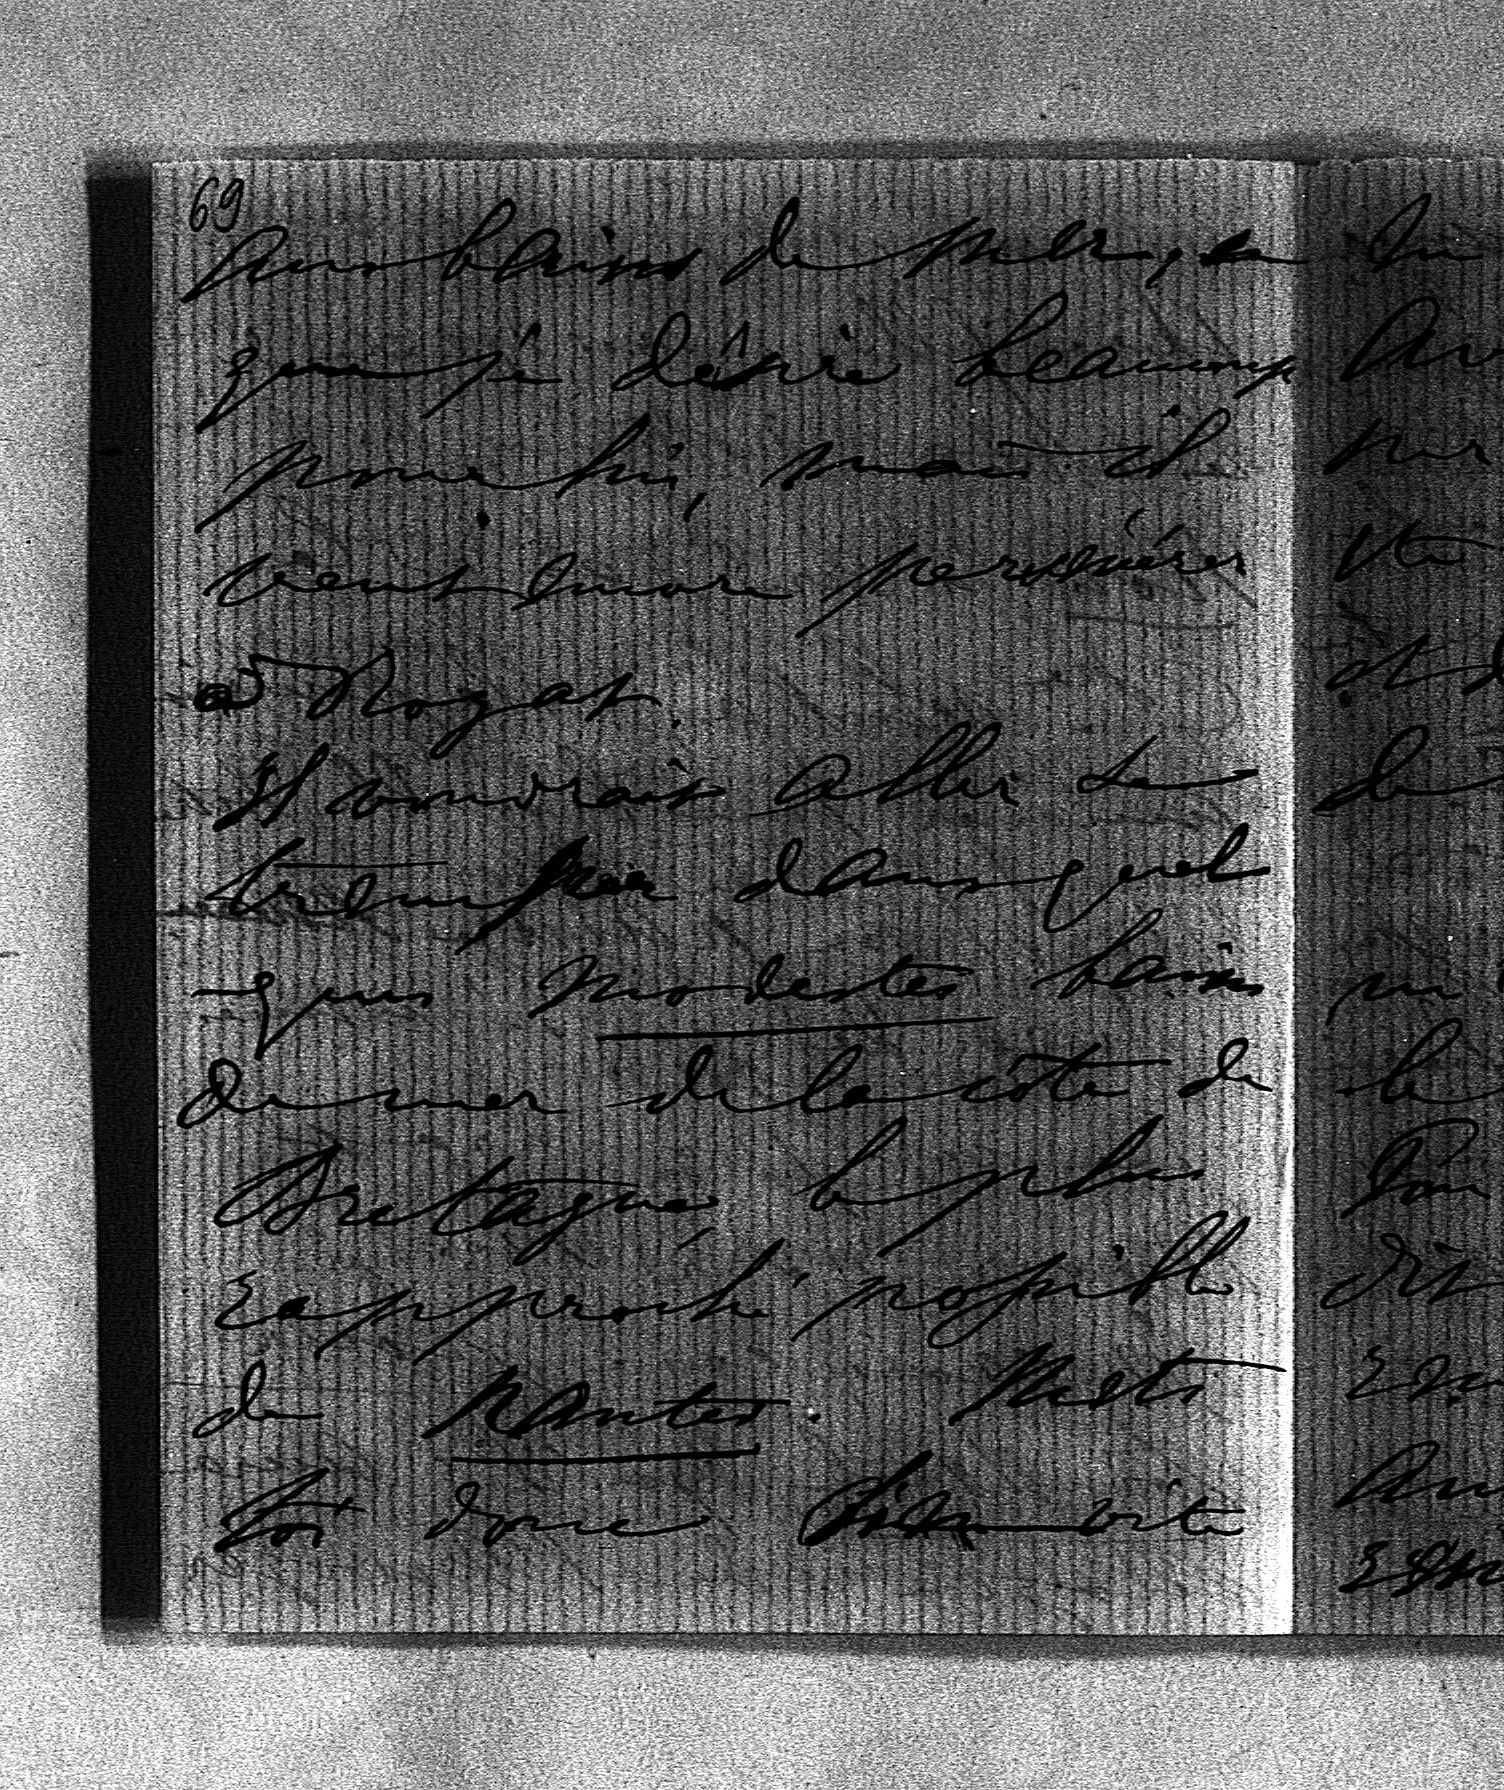 69
aux bains de mer, ce
que je désire beaucoup
pour lui, mais il
veut encore persévérer
à Royat.
Il voudrait aller se
tremper dans quel
-ques modestes bains
de mer de la côte de
Bretagne, le plus
rapproché possible
de Nantes. Mets
toi donc vite